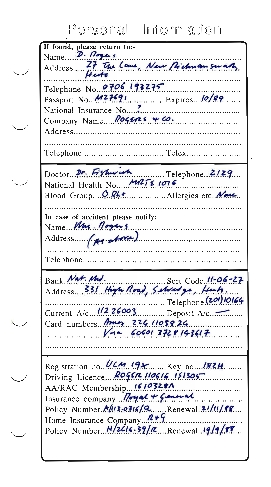 Personal Information
If found, please return to:-
Name D. Rogers
Address 27 The Lane, New
Herts
Telephone No. 0706 193275
Passport No. M27691 Expires 10/89
National Insurance No. ?
Company Name ROGERS & CO.
Address
Telephone Telex
Doctor Dr. Telephone 2129
National Health No. 1076
Blood Group Allergies etc None
In case of accident please notify:
Name Mrs Rogers
Address (as above)
Telephone
Bank Nat. Wd. Sort Code 11-06-27
Address 331 High Road, Herts
Telephone (201) 10164
Current A/c 1126003 Deposit A/c —
Card numbers Amex 276 1103826
Visa
Registration no. UCM 19X Key no. 182H
Driving Licence ROGER 110616 151305
AA/RAC Membership 1610328A
Insurance company Royal & General
Policy Number Renewal 21/11/88
Home Insurance Company R&G
Policy Number Renewal 19/9/88